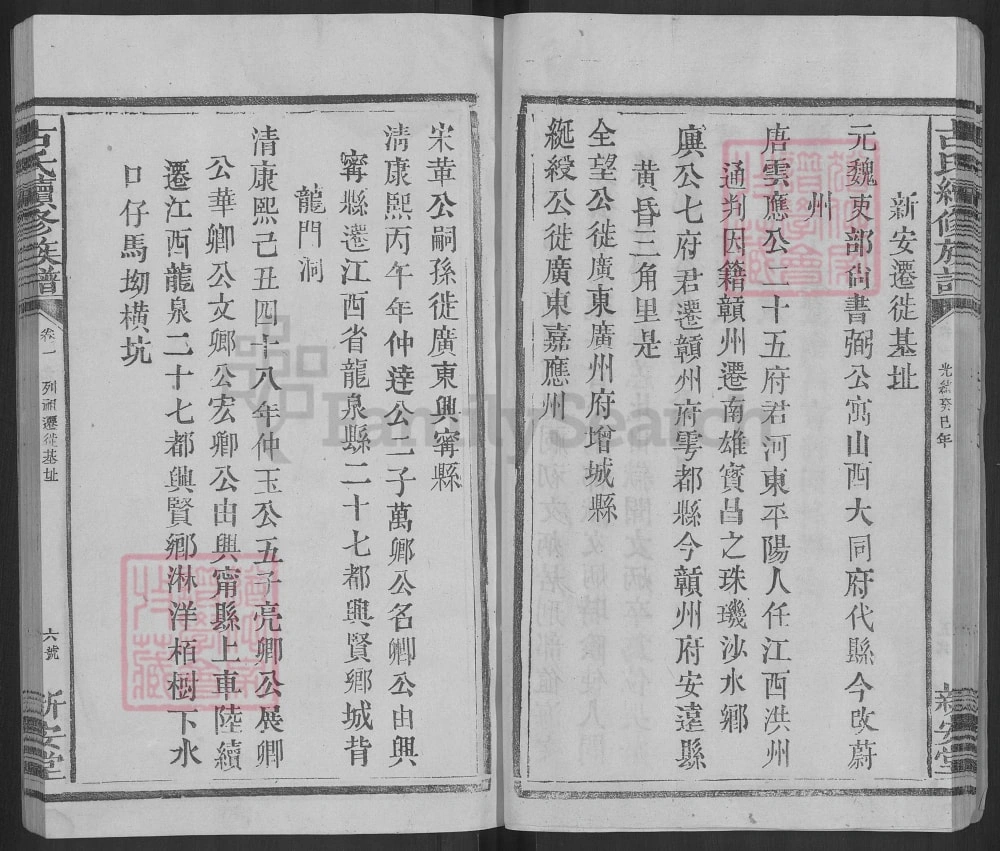 古氏續修族譜
光緒癸巳年
新安堂
新安遷徙基址
元魏吏部尙書弼公寓山西大同府代縣今改蔚
州
唐雲應公二十五府君河東平陽人任江西洪州
通判因籍贛州遷南雄寶昌之珠璣沙水鄉
龑公七府君遷贛州府雩都縣今贛州府安遠縣
黃昏三角里是
全望公徙廣東廣州府增城縣
綖綬公徙廣東嘉應州
宋葦公嗣孫徙廣東興寧縣
淸康熙丙午年仲逹公二子萬卿公名卿公由興
寧縣遷江西省龍泉縣二十七都興賢鄉城背
龍門洞
淸康熙己丑四十八年仲玉公五子亮卿公展卿
公華卿公文卿公宏卿公由興甯縣上車陸續
遷江西龍泉二十七都興賢鄉淋洋栢樹下水
口仔馬坳橫坑
古氏續修族譜
卷一
列祖遷徙基址
六號
新安堂
FamilySearch